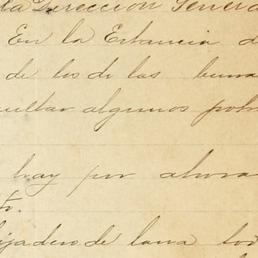 la Direccion Genera
En la Estancia d
de los de las buena
ultar algunos potr
hay por ahora
to.
ijadero de lana tod